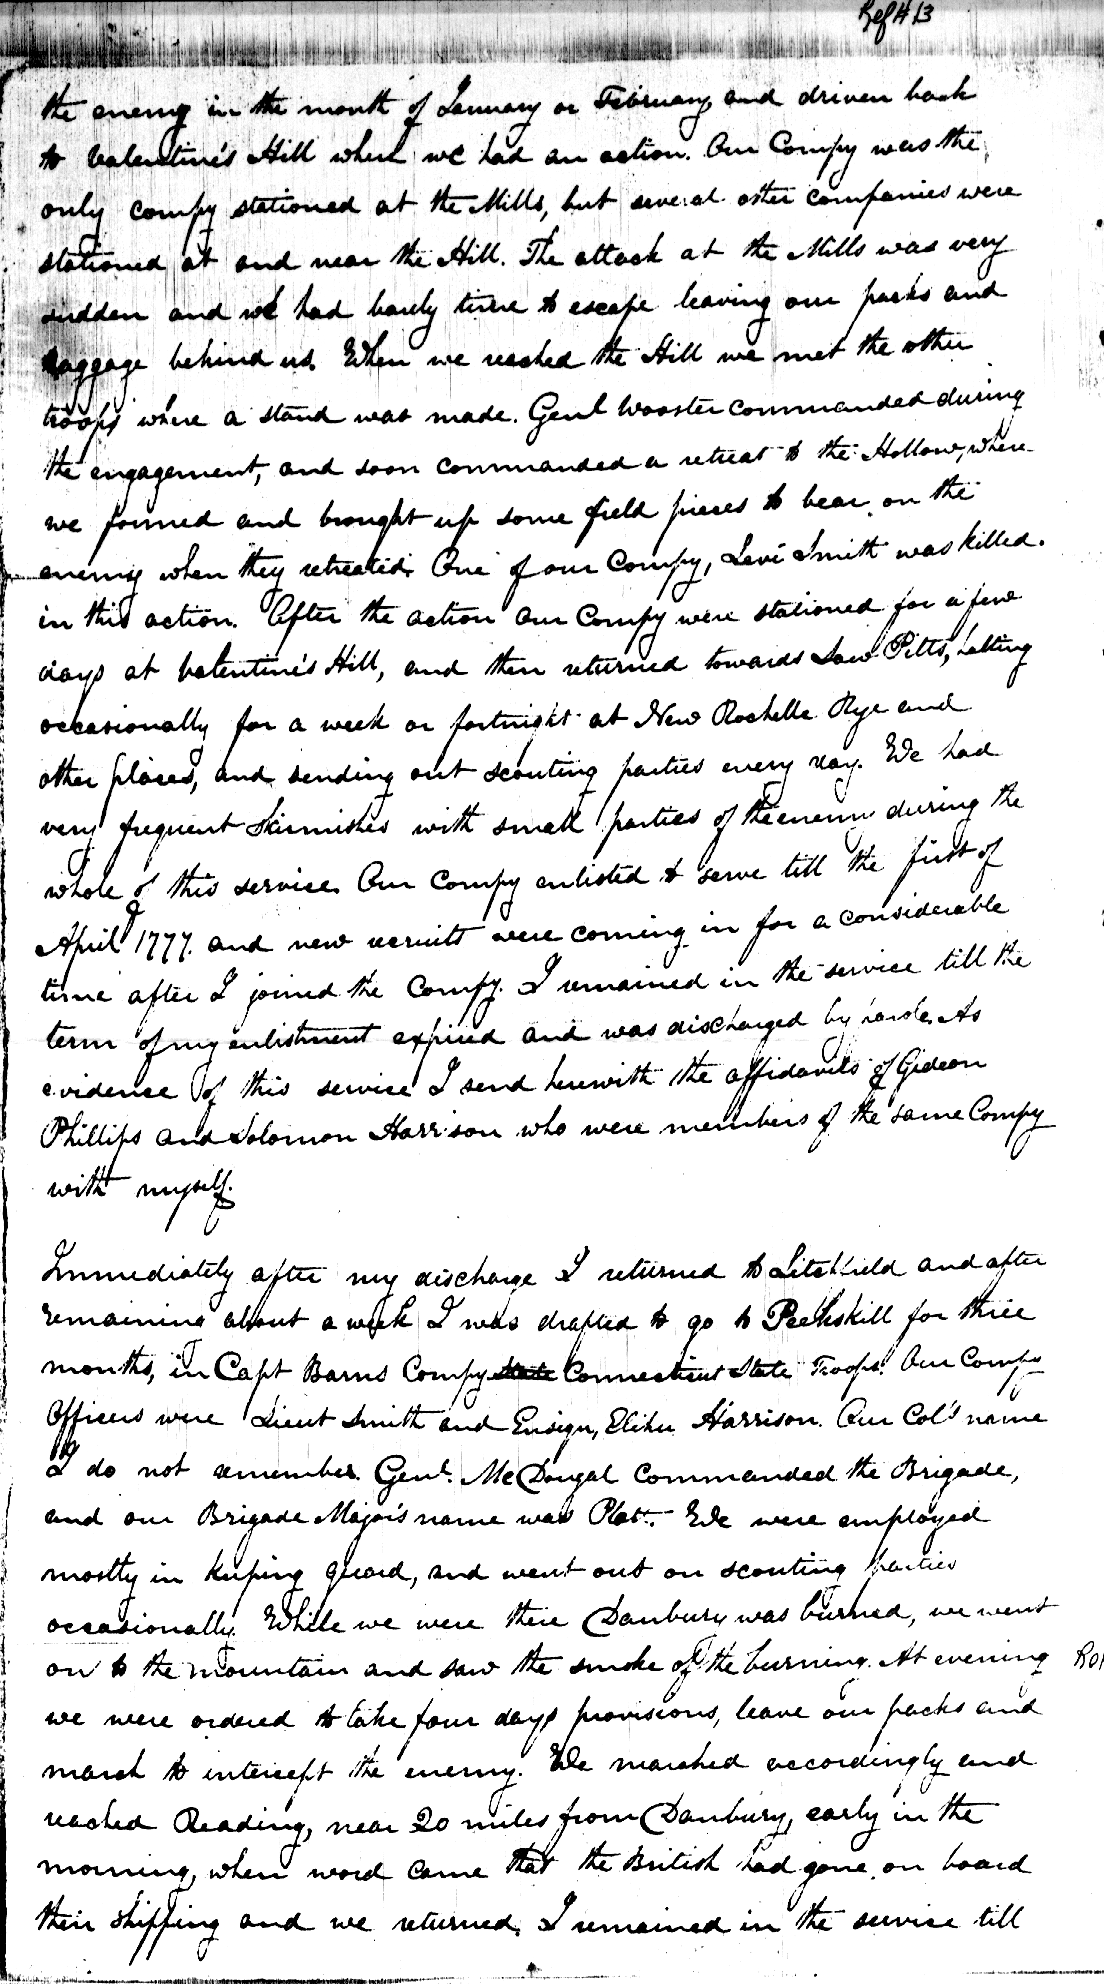 Ref # 13
the enemy in the month of January or February, and driven back
to Valentine's Hill where we had an action. Our Compy was the
only compy stationed at the Mills, but several other companies were
stationed at and near the Hill. The attack at the Mills was very
sudden and we had barely time to escape leaving our packs and
baggage behind us. When we reached the Hill we met the other
troops where a stand was made. Genl Wooster commanded during
the engagement, and soon commanded a retreat to the Hollow, where
we formed and brought up some field pieces to bear on the
enemy when they retreated. One of our Compy, Levi Smith was killed
in this action. After the action our Compy were stationed for a few
days at Valentine's Hill, and then returned towards Saw Pitts, halting
occasionally for a week or fortnight at New Rochelle Rye and
other places, and sending out scouting parties every day. We had
very frequent Skirmishes with small parties of the enemy during the
whole of this service. Our Compy enlisted to serve till the first of
April 1777. and new recruits were coming in for a considerable
time after I joined the Compy. I remained in the service till the
term of my enlistment expired and was discharged by parole. As
evidence of this service I send herewith the affidavits of Gideon
Phillips and Solomon Harrison who were members of the same Compy
with myself.
Immediately after my discharge I returned to Litchfield and after
remaining about a week I was drafted to go to Peekskill for three
months, in Capt Barns Compy State Connecticut State Troops. Our Compy
Officers were Lieut Smith and Ensign, Elihu Harrison. Our Col's name
I do not remember. Genl. McDougal commanded the Brigade,
and our Brigade Major's name was Platt. We were employed
mostly in keeping guard, and went out on scouting parties
occasionally. While we were there Danbury was burned, we went
on to the mountain and saw the smoke of the burning. At evening
we were ordered to take four days provisions, leave our packs and
march to intercept the enemy. We marched accordingly and
reached Reading, near 20 miles from Danbury, early in the
morning, when word came that the British had gone on board
their shipping and we returned. I remained in the service till